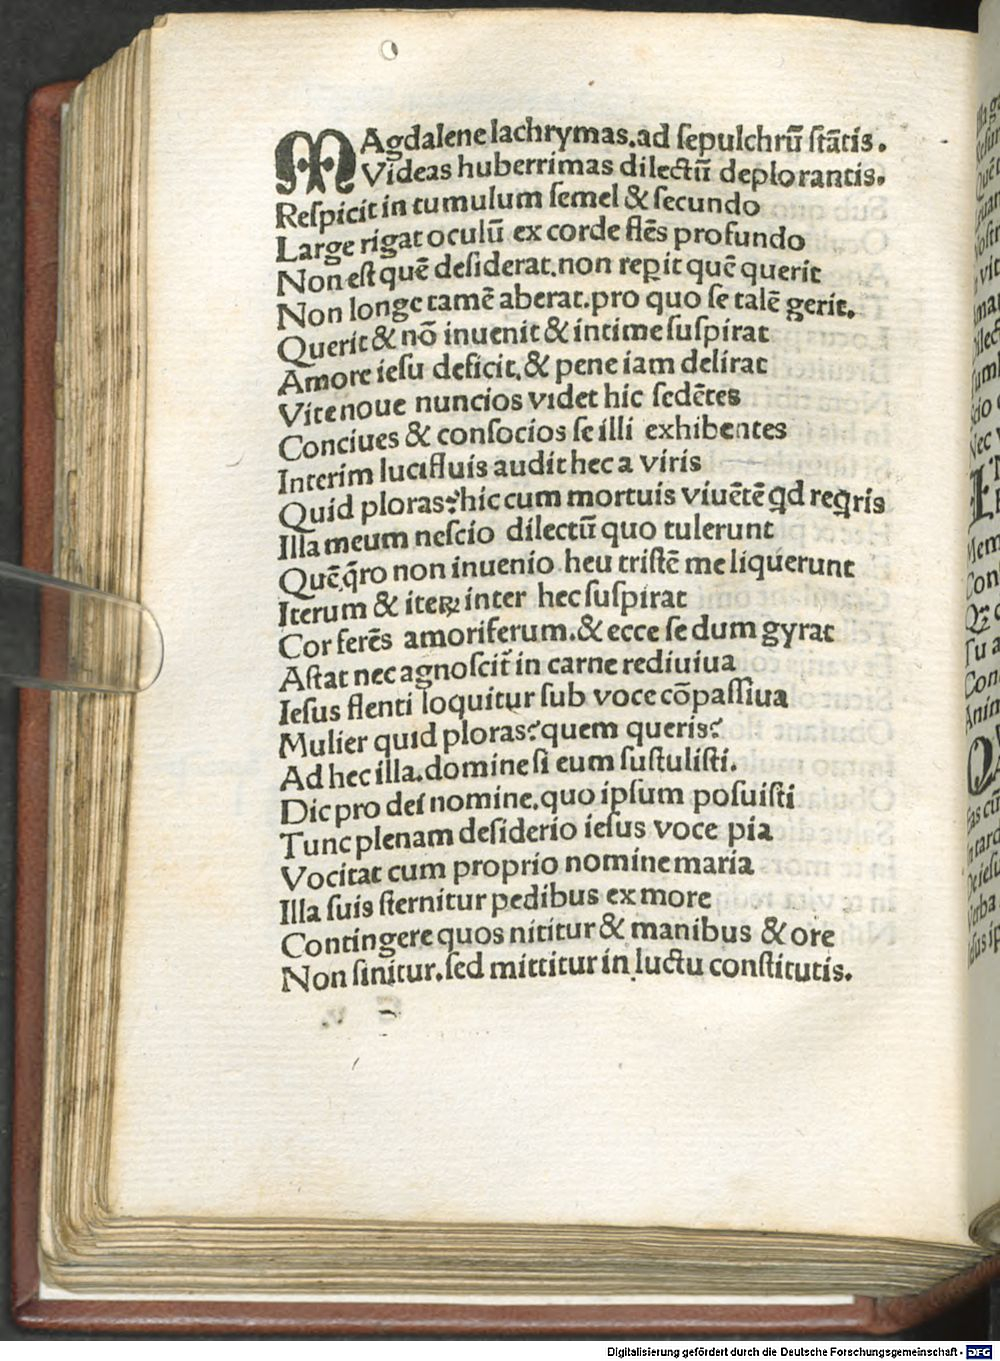 MAgdalene lachrymas.ad ſepulchrū ſtātis.
Videas huberrimas dilectū deplorantis.
Reſpicit in tumulum ſemel & ſecundo
Large rigat oculū ex corde flēs profundo
Non eſt quē deſiderat.non reꝑit quē querit
Non longe tamē aberat.pro quo ſe talē gerit.
Querit & nō inuenit & intime ſuſpirat
Amore ieſu deficit.& pene iam delirat
Vite noue nuncios videt hic ſedētes
Conciues & conſocios ſe illi exhibentes
Interim lucifluis audit hec a viris
Quid ploras? hic cum mortuis viuētē qd reqris
Illa meum neſcio dilectū quo tulerunt
Quē.q̄ro non inuenio heu triſtē me liquerunt
Iterum & iteꝝ inter hec ſuſpirat
Cor ferēs amoriferum.& ecce ſe dum gyrat
Aſtat nec agnoſcit̄ in carne rediuiua
Ieſus flenti loquitur ſub voce cōpaſſiua
Mulier quid ploras? quem queris?
Ad hec illa.domine ſi eum ſuſtuliſti.
Dic pro dei nomine.quo ipſum poſuiſti
Tunc plenam deſiderio ieſus voce pia
Vocitat cum proprio nomine maria
Illa ſuis ſternitur pedibus ex more
Contingere quos nititur & manibus & ore
Non ſinitur.ſed mittitur in luctu conſtitutis.
Digitalisierung gefördert durch die Deutsche Forschungsgemeinschaft - DFG